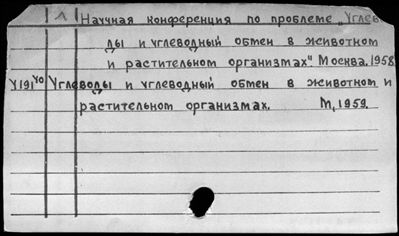 Л Научная конференция по проблеме „Углево
ды и углеводный обмен в животном
и растительном организмах". Москва. 1958
У191 40 Углеводы и углеводный обмен в животном и
растительном организмах. М, 1959.